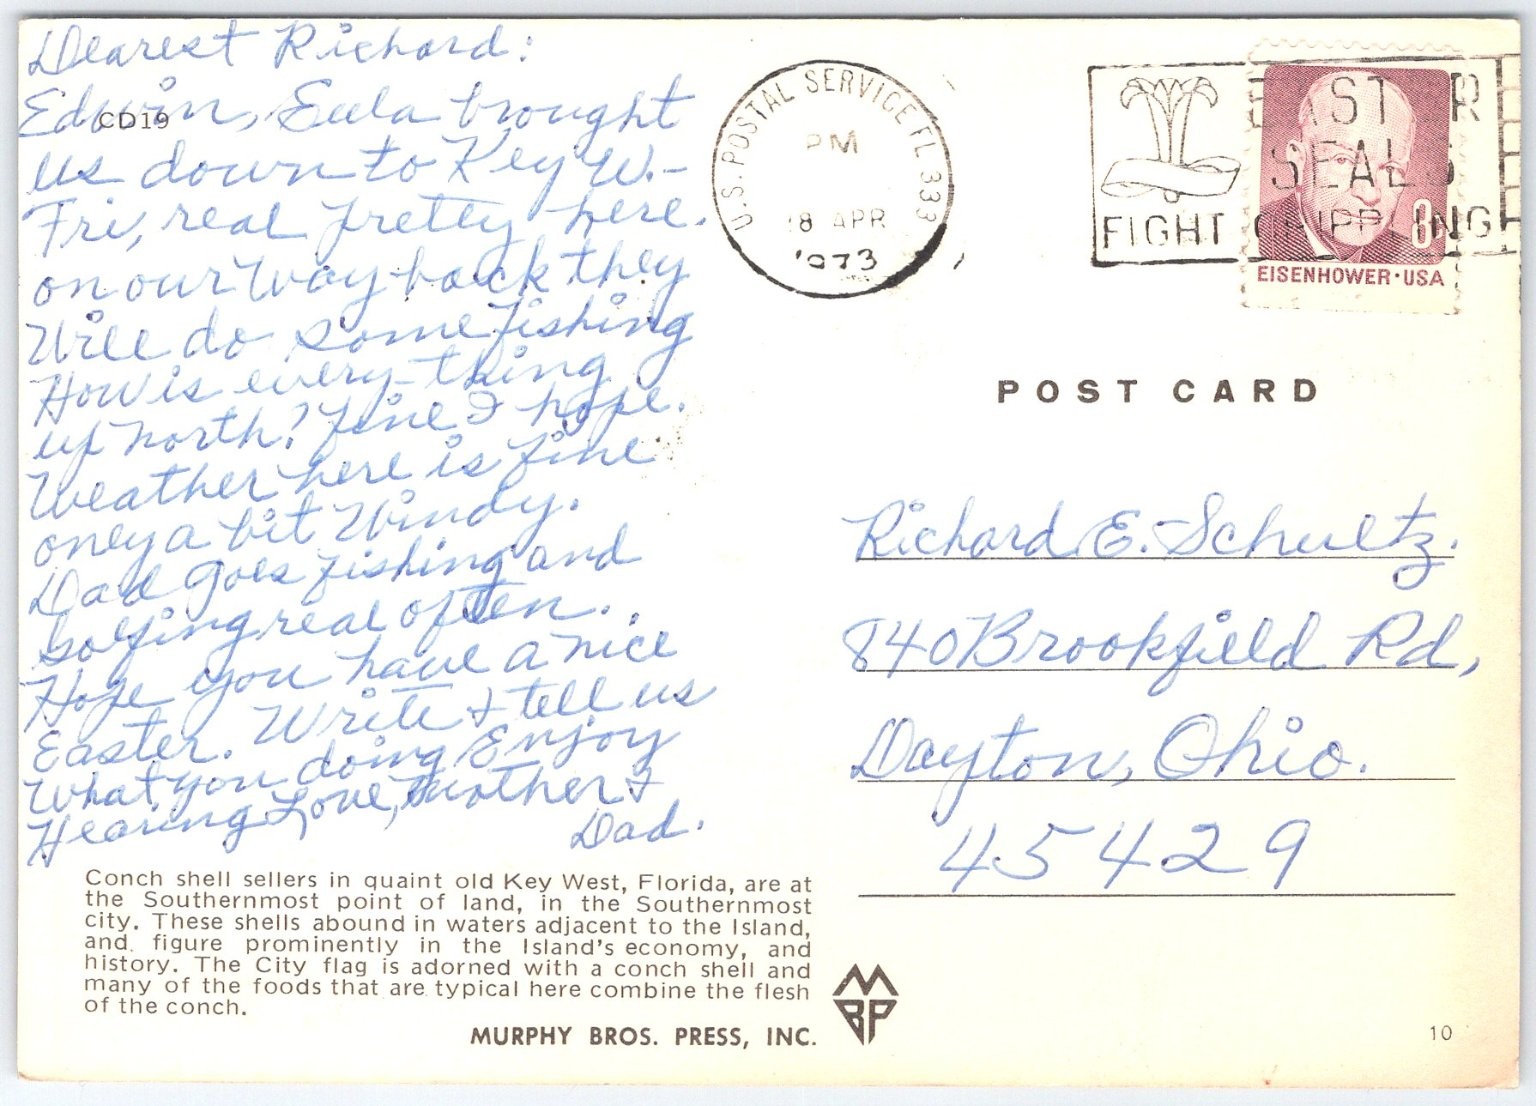 Dearest Richard:
Edwin, Eula brought
CD19
us down to Key W.-
Fri, real pretty here.
on our way back they
Will do some fishing
How is every-thing
up north? fine I hope.
Weather here is fine
only a bit Windy.
Dad goes fishing and
golfing real often.
Hope you have a nice
Easter. Write & tell us
What you doing Enjoy
Hearing Love, Mother &
Dad.
Conch shell sellers in quaint old Key West, Florida, are at
the Southernmost point of land, in the Southernmost
city. These shells abound in waters adjacent to the Island,
and figure prominently in the Island's economy, and
history. The City flag is adorned with a conch shell and
many of the foods that are typical here combine the flesh
of the conch.
MURPHY BROS. PRESS, INC.
MBP
U.S. POSTAL SERVICE FL 333
PM
18 APR
1973
EASTER
SEALS
FIGHT CRIPPLING
8
EISENHOWER·USA
POST CARD
Richard E. Schultz.
840 Brookfield Rd,
Dayton, Ohio.
45429
10